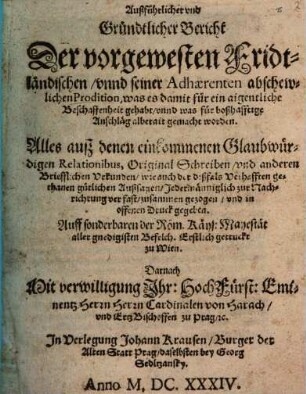 Außführlicher vnd
Gründtlicher Bericht
Der vorgewesten Fridt-
ländischen / vnnd seiner Adhærenten abschew-
lichen Prodition, was es damit für ein aigentliche
Beschaffenheit gehabt / vnnd was für boßhafftige
Anschläg alberait gemacht worden.
Alles auß denen einkommenen Glaubwür-
digen Relationibus, Original Schreiben / vnd anderen
Brieflichen Vrkunden / wie auch der dißfals Verhafften ge-
thanen gütlichen Außsagen / Jedermänniglich zur Nach-
richtung verfast / zusammen gezogen / vnd in
offenen Druck gegeben.
Auff sonderbaren der Röm. Käys: Mayestät
aller gnedigisten Befelch. Erstlich getruckt
zu Wien.
Darnach
Mit verwilligung Ihr: Hoch Fürst: Emi-
nentz Herrn Herrn Cardinalen von Harach /
vnd Ertz Bischoffen zu Prag / ꝛc.
In Verlegung Johann Krausen / Burger der
Alten Statt Prag / daselbsten bey Georg
Sedltzansky.
Anno M, DC. XXXIV.